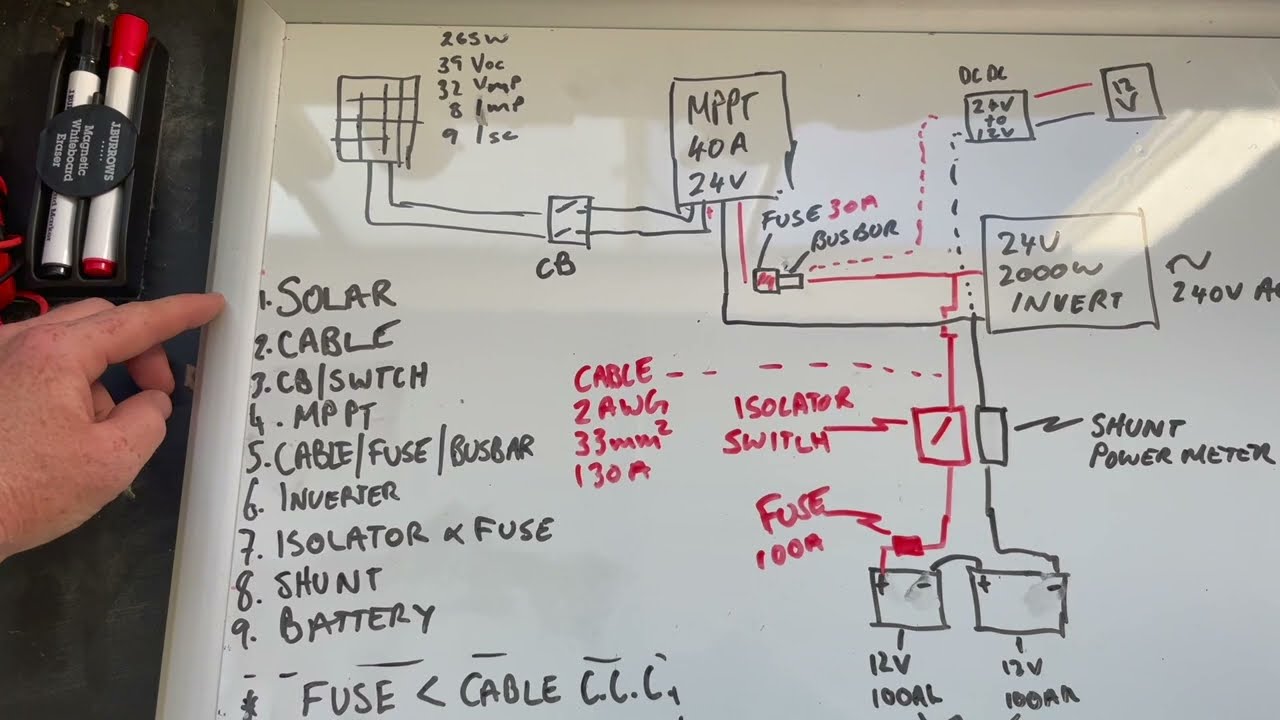 265W
39 Voc
32 Vmp
8 Imp
9 Isc
MPPT
40A
24V
DC DC
24V
to
12V
12
V
J.BURROWS
Magnetic
Whiteboard
Eraser
CB
FUSE 30A
BUSBUR
24V
2000W
INVERT
~
240V AC
1. SOLAR
2. CABLE
3. CB/SWTCH
4. MPPT
5. CABLE/FUSE/BUSBAR
6. INVERTER
7. ISOLATOR & FUSE
8. SHUNT
9. BATTERY
CABLE
2 AWG
33mm²
130A
ISOLATOR
SWITCH
SHUNT
POWER METER
FUSE
100A
+ -
+ -
12V
100AH
12V
100AH
* FUSE < CABLE C.C.C.